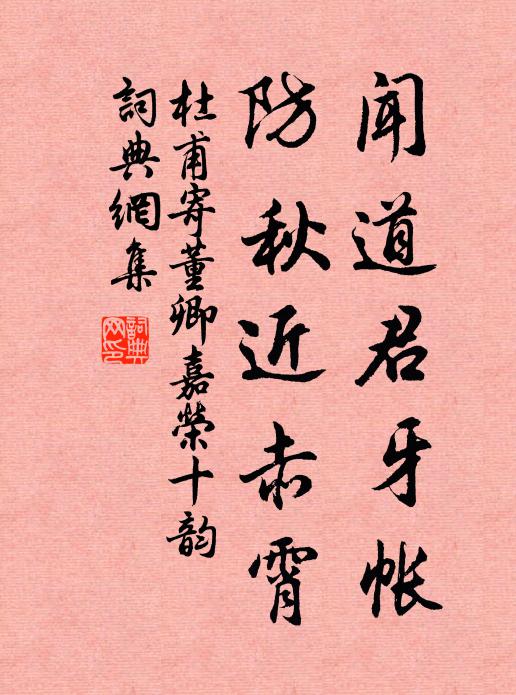 聞道君牙帳
防秋近赤霄
杜甫寄董卿嘉榮十韵
詞典網集
詞典網印